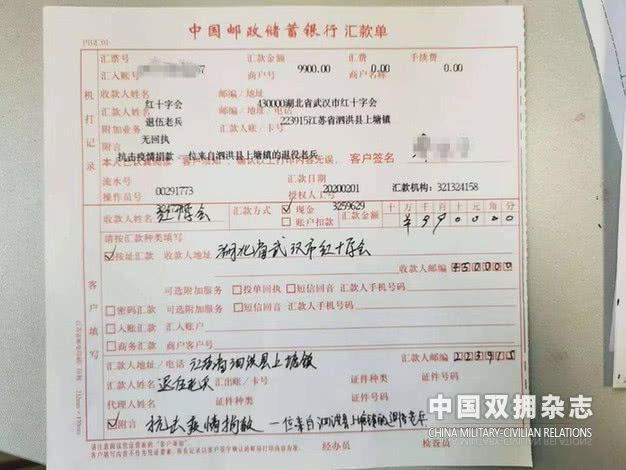 中国邮政储蓄银行 汇款单
机打记录
汇票号 汇款金额 汇费 手续费
汇入账号 7 商户号 9900.00 商户名称 0.00 0.00
收款人姓名 邮编/地址
红十字会 430000湖北省武汉市红十字会
汇款人姓名 邮编/地址/电话
退伍老兵 223915江苏省泗洪县上塘镇
附加业务 汇款人账/卡号
无回执
附言
抗击疫情捐款 一位来自泗洪县上塘镇的退役老兵
客户签名
流水号 汇款日期
操作员号 00291773 授权人工号 20200201 汇款机构：321324158
3259629
收款人姓名 红十字会 汇款方式 ☑现金 □账户扣款 汇款金额 十万千百十元角分
¥990000
客户填写
请按汇款种类填写
☑按址汇款 收款人地址 湖北省武汉市红十字会
收款人邮编 430000
可选附加服务 □投单回执 □短信回音 汇款人手机号码
□密码汇款 可选附加服务 □短信回音 汇款人手机号码
□入账汇款 汇入账户
□商务汇款 商户客户号
汇款人地址/电话 江苏省泗洪县上塘镇 汇款人邮编 223915
汇款人姓名 退伍老兵 汇出账/卡号 证件种类 证件号码
代理人姓名 证件种类 证件号码
☑附言 抗击疫情捐款 一位来自泗洪县上塘镇的退伍老兵
经办员 检查员
中国双拥杂志
CHINA MILITARY-CIVILIAN RELATIONS